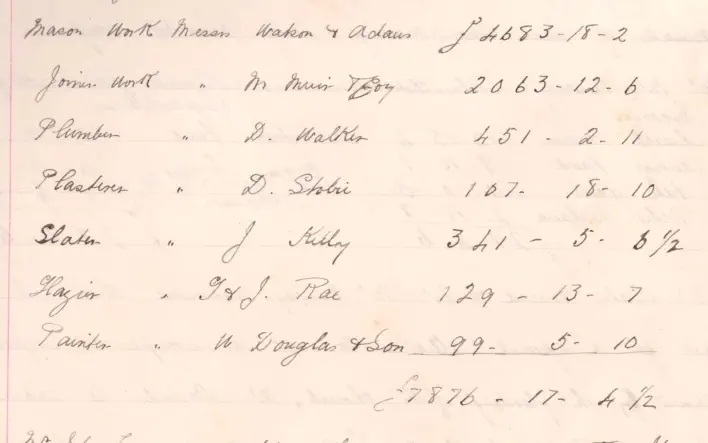 Mason Work Messrs Watson & Adams £4683-18-2
Joiner Work " M Muir & Coy 2063-12-6
Plumber " D. Walker 451-2-11
Plasterer " D. Stobie 107-18-10
Slater " J 341-5-6½
Glazier " & J. Rae 129-13-7
Painter " W Douglas & Son 99-5-10
£7876-17-4½